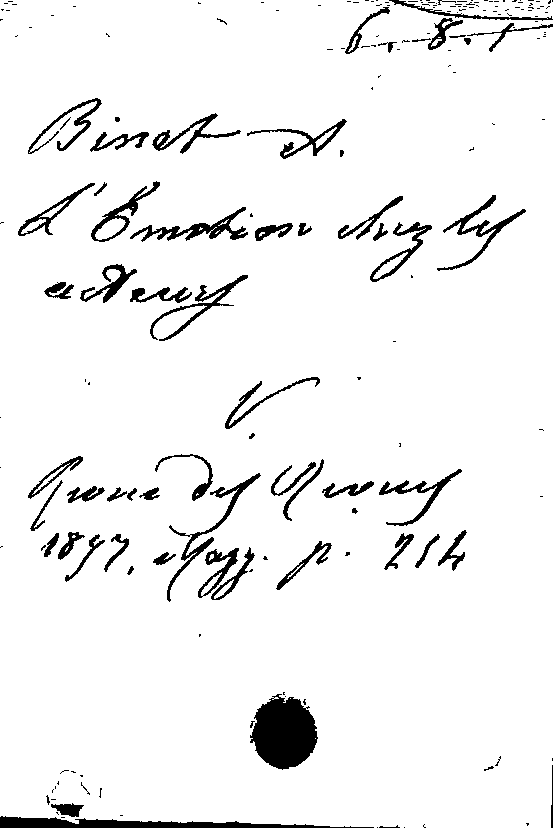 6.8.1
Binet A.
L'Émotion chez les
acteurs
V.
Revue des Revues
1897, Magg. p. 214